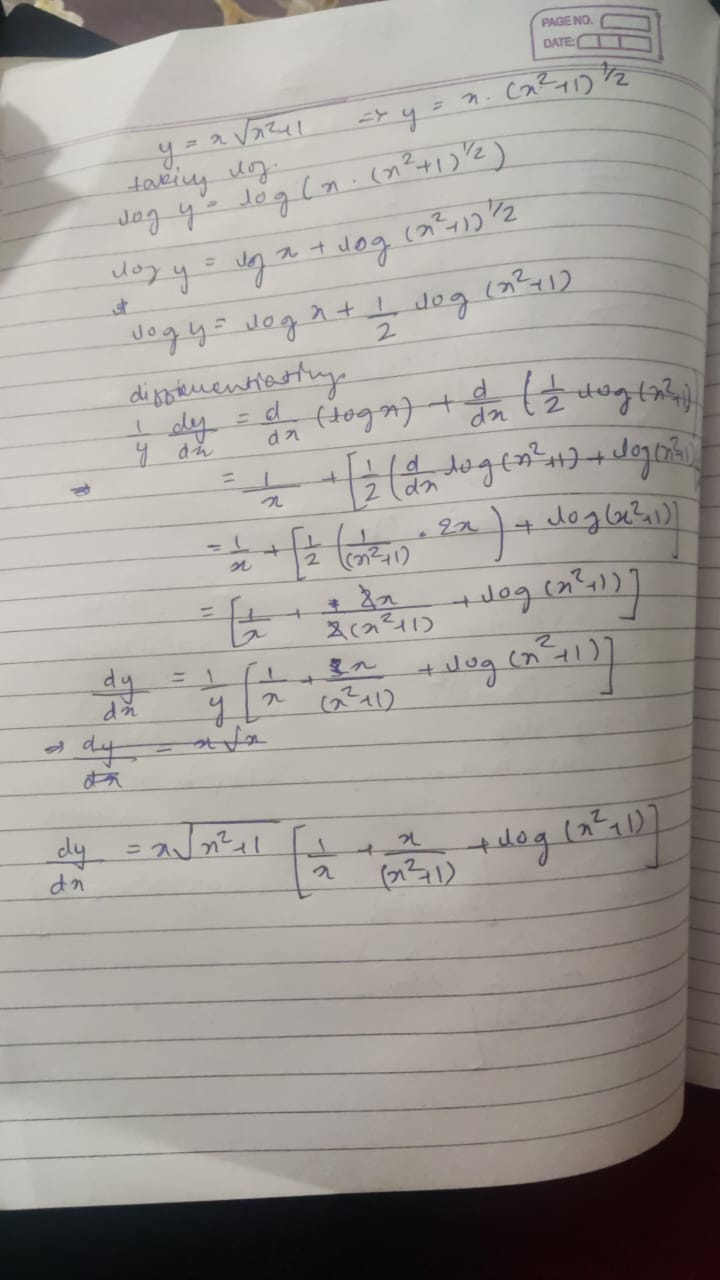 PAGE NO.
DATE:
y = x √x²+1 => y = x . (x²+1)^1/2
taking log.
log y = log (x . (x²+1)^1/2)
log y = log x + log (x²+1)^1/2
log y = log x + 1/2 log (x²+1)
differentiating
1/y dy/dx = d/dx (log x) + d/dx (1/2 log (x²+1)
= 1/x + [1/2 (d/dx log (x²+1) + log (x²+1)
= 1/x + [1/2 (1/(x²+1) . 2x) + log (x²+1)]
= [1/x + 2x/2(x²+1) + log (x²+1)]
dy/dx = 1/y [1/x + x/(x²+1) + log (x²+1)]
=> dy/dx = x √x
dy/dx = x √x²+1 [1/x + x/(x²+1) + log (x²+1)]